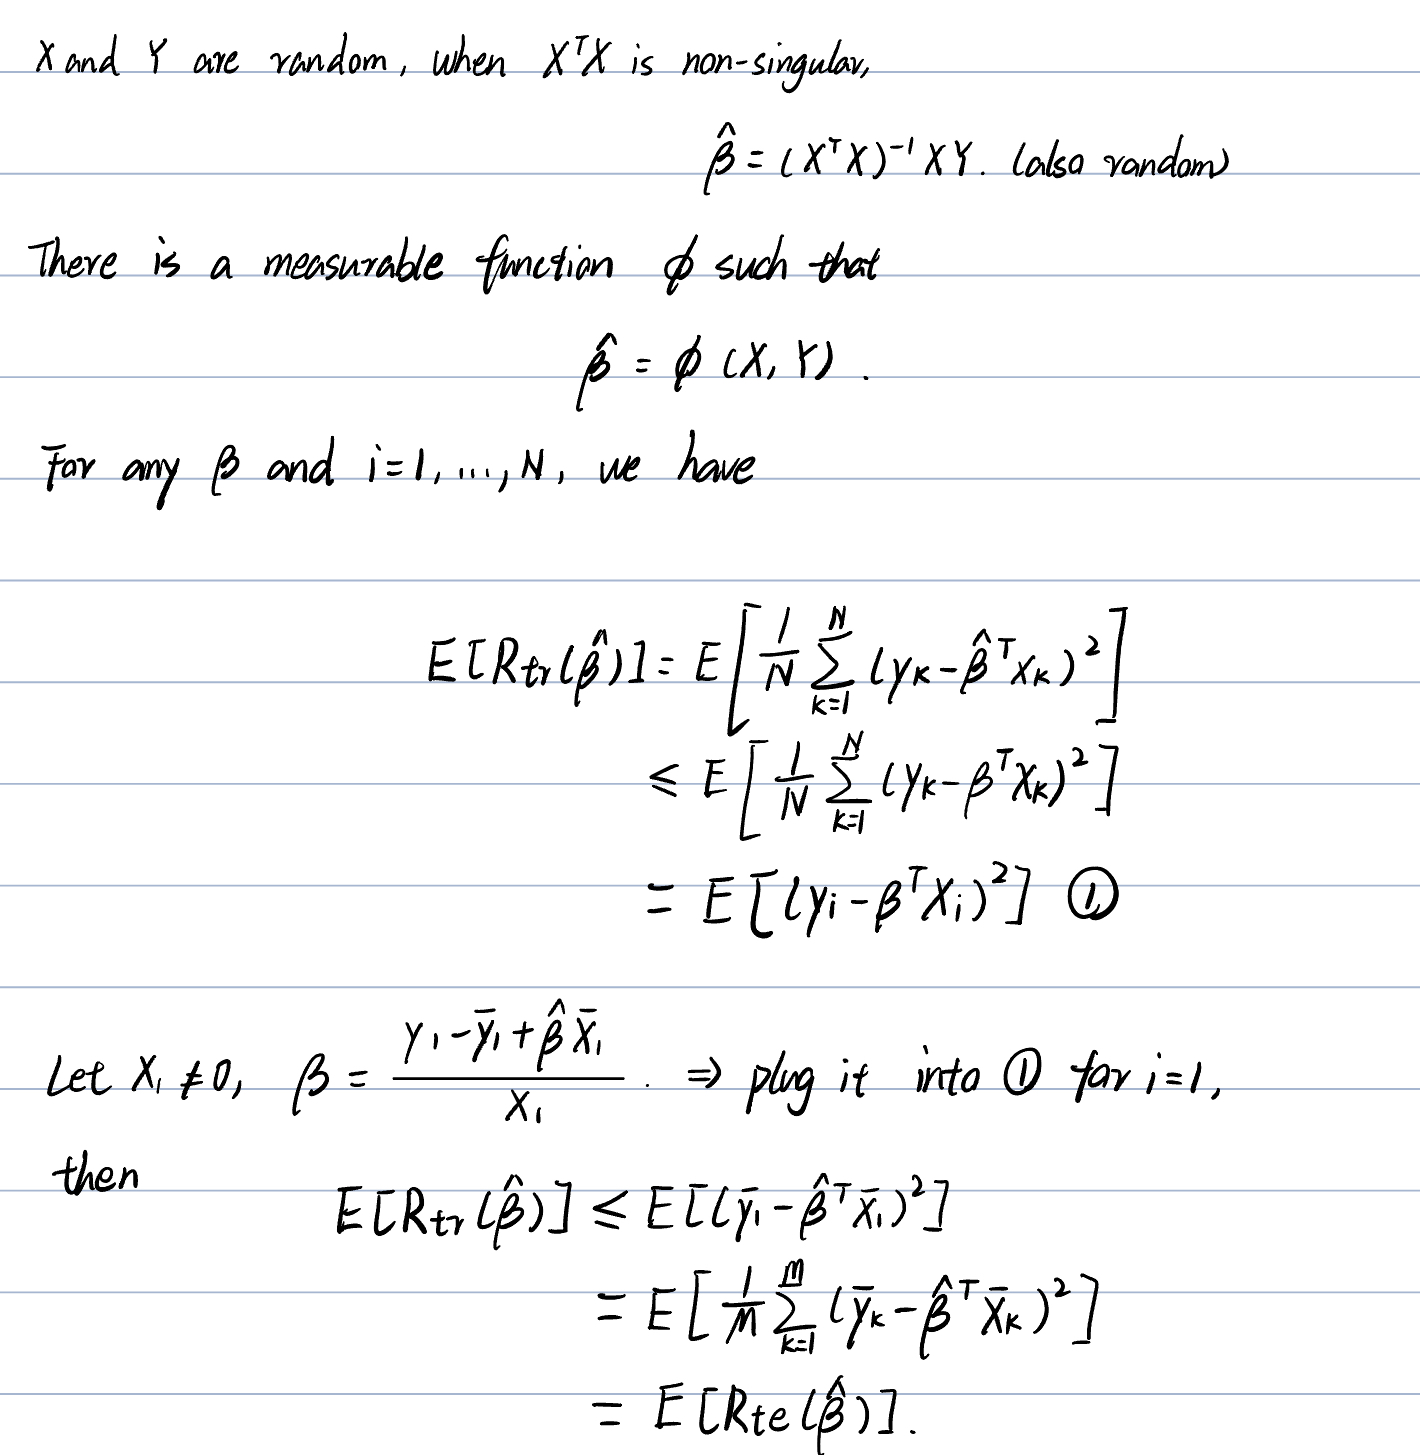 X and Y are random, when XᵀX is non-singular,
β̂ = (XᵀX)⁻¹XY. (also random)
There is a measurable function ϕ such that
β̂ = ϕ(X, Y).
For any β and i=1, ..., N, we have
E[R_tr(β̂)] = E[1/N ∑_{k=1}^{N} (y_k - β̂ᵀx_k)²]
≤ E[1/N ∑_{k=1}^{N} (y_k - βᵀx_k)²]
= E[(y_i - βᵀx_i)²] ①
Let x₁ ≠ 0, β = (y₁ - ȳ₁ + β̂x̄₁)/x₁. ⇒ plug it into ① for i=1,
then
E[R_tr(β̂)] ≤ E[(ȳ₁ - β̂ᵀx̄₁)²]
= E[1/M ∑_{k=1}^{M} (ȳ_k - β̂ᵀx̄_k)²]
= E[R_te(β̂)].